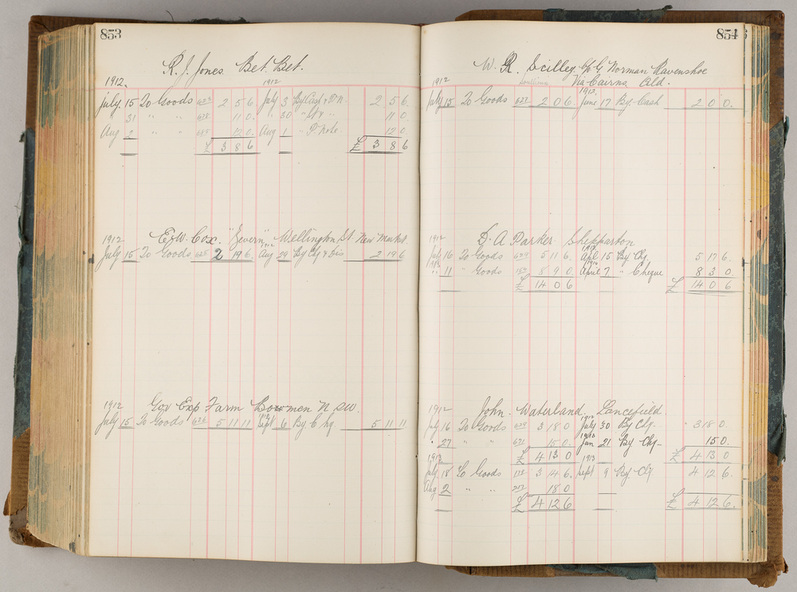 853
R. J. Jones Bet Bet.
1912. 1912
July 15 To Goods 2 5 6 July 3 By 2 5 6.
31 " " 11 0. 30 " " 11 0
Aug 2 " " 12.0 Aug 1 " P. Note 12 0
£ 3 8 6 £ 3 8 6
1912 E. W. Cox. "Severn" Wellington St New Market.
July 15 To Goods 2 19 6. Aug 29 By Chq & Dis 2 19 6
1912 Gov Exp Farm Bowmen N SW.
July 15 To Goods 5 11 11 Sept 6 By Chq 5 11 11
854
W. R. Scilley Norman Ravenshoe
1912 Via Cairns Qld.
July 15 To Goods 2 0 6 June 17 By Cash 2 0 0.
1912 D. A. Parker Shepparton
July 16 To Goods 5 11 6. 15 By Chq. 5 17 6.
" 11 " Goods 8 9 0. April 7 " Cheque 8 3 0.
£ 14 0 6 £ 14 0 6
1912 John Waterland Lancefield
July 16 To Goods 3 18 0 July 30 By Chq. 3 18 0.
" 27 " " 15 0. Jan 21 By Chq 15 0.
1912 £ 4 13 0 £ 4 13 0
July 18 To Goods 3 14 6. Sept 9 By Chq 4 12 6.
Aug 2 " " 18 0
£ 4 12 6 £ 4 12 6.